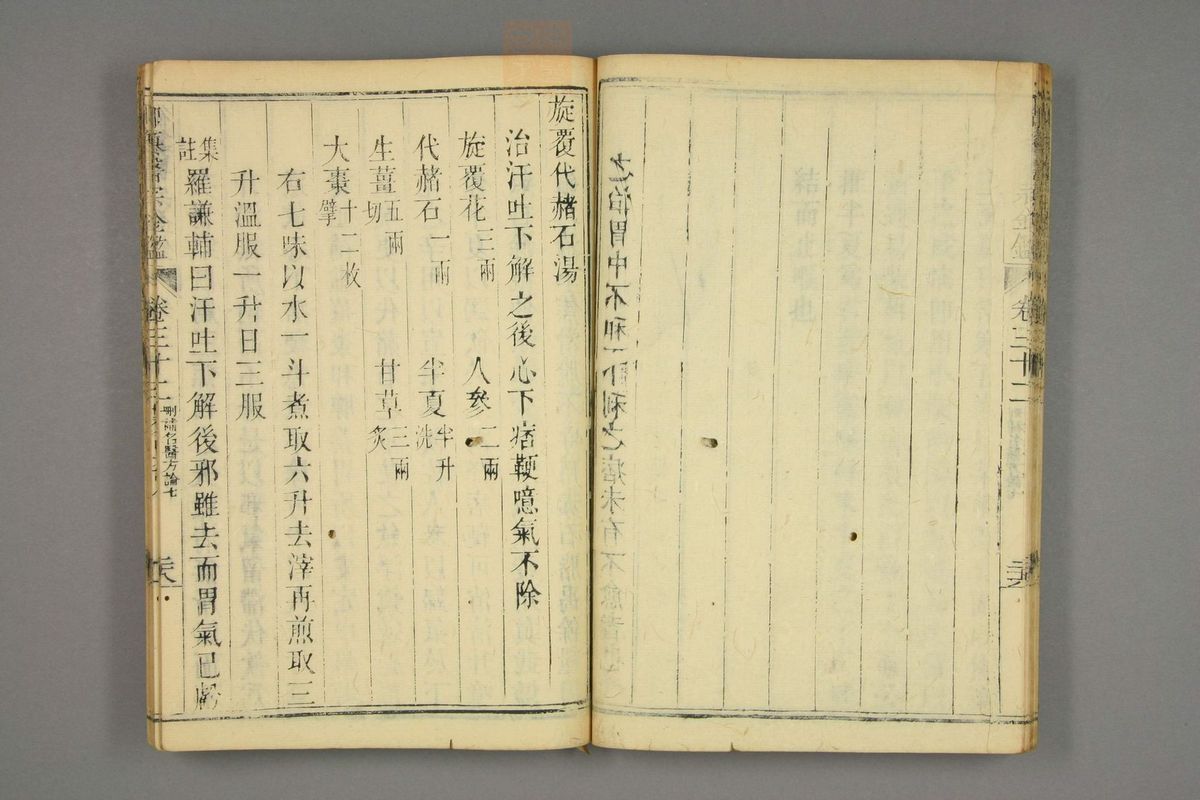 之治胃中不和下利之痞未有不愈者也
旋覆代赭石湯
治汗吐下解之後心下痞鞕噫氣不除
旋覆花三兩 人參二兩
代赭石一兩 半夏半升洗
生薑五兩切 甘草三兩炙
大棗十二枚擘
右七味以水一斗煮取六升去滓再煎取三
升溫服一升日三服
集註羅謙輔曰汗吐下解後邪雖去而胃氣已虧
御纂醫宗金鑑 卷三十二 刪補名醫方論七
卷三十二